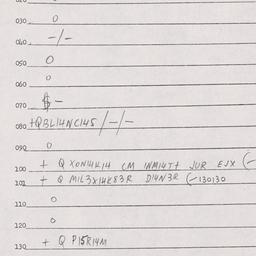 030 0
040 -/-
050 0
0
060
070 $ -
080 +QBL14NC14S /-/-
090 0
100 + Q XON14K14 CM INM14T+ JUR EJX (-
101 + Q MIL3X14K83R D14N3R (-130130
110 0
0
120
130 + Q P15R14M